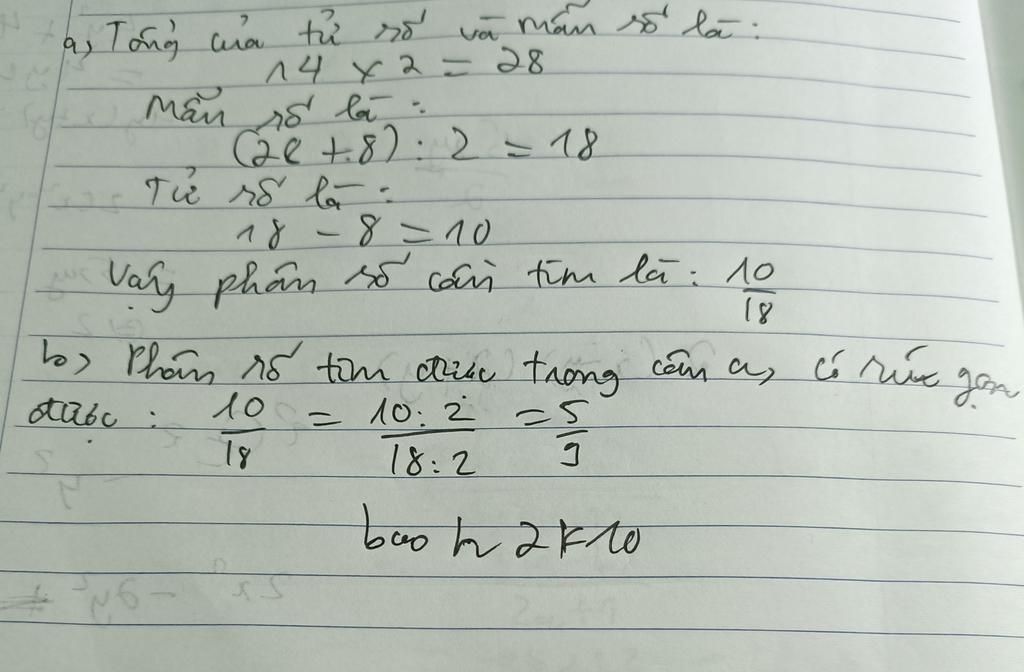 a, Tổng của tử số và mẫu số là:
14 x 2 = 28
Mẫu số là:
(28 + 8) : 2 = 18
Tử số là:
18 - 8 = 10
Vậy phân số cần tìm là: 10/18
b, Phân số tìm được trong câu a, có rút gọn
được: 10/18 = 10:2/18:2 = 5/9
bao h 2k10